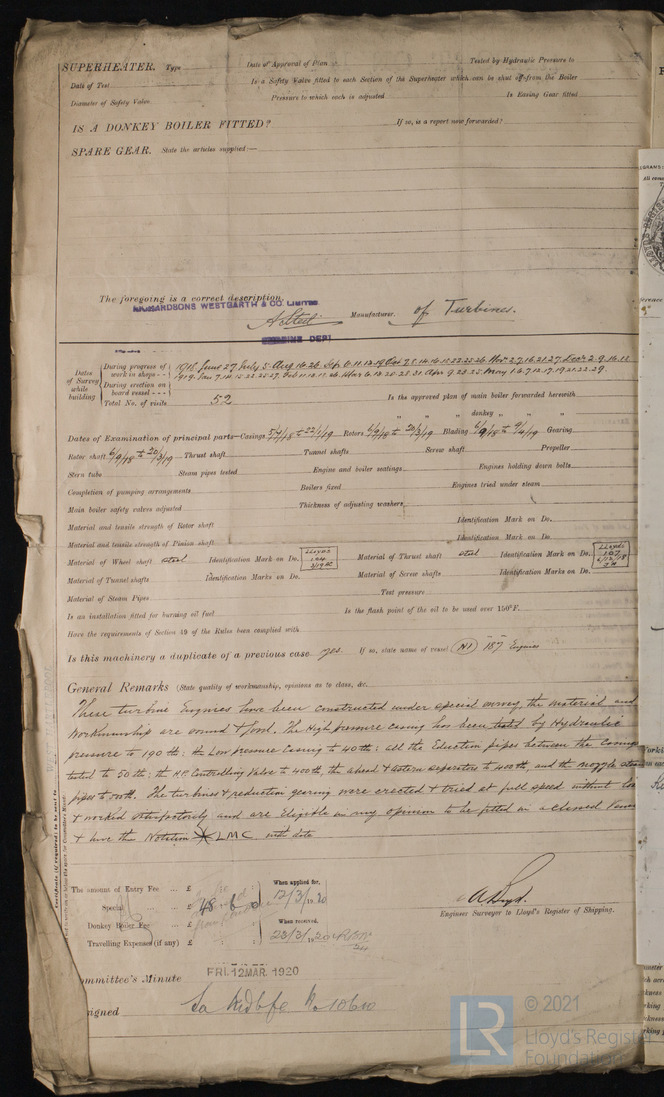 SUPERHEATER. Type
Date of Approval of Plan
Tested by Hydraulic Pressure to
Date of Test
Is a Safety Valve fitted to each Section of the Superheater which can be shut off from the Boiler
Diameter of Safety Valve
Pressure to which each is adjusted
Is Easing Gear fitted
IS A DONKEY BOILER FITTED?
If so, is a report now forwarded?
SPARE GEAR. State the articles supplied:—
The foregoing is a correct description,
RICHARDSONS WESTGARTH & CO. LIMITED
Manufacturer. of Turbines.
ENGINE DEPT
Dates of Survey while building
During progress of work in shops - -
1918. June 27. July 5. Aug 16. 26. Sep
During erection on board vessel - - -
1919. Jan 7. 14. 15. 22. 25. 27. Feb
Total No. of visits 52
Is the approved plan of main boiler forwarded herewith
" " donkey " "
Dates of Examination of principal parts—Casings 5/7/18 to 22/1/19 Rotors 6/9/18 to 20/3/19 Blading 6/9/18 to 9/4/19 Gearing
Rotor shaft 6/9/18 to 20/3/19 Thrust shaft Tunnel shafts Screw shaft Propeller
Stern tube Steam pipes tested Engine and boiler seatings Engines holding down bolts
Completion of pumping arrangements Boilers fixed Engines tried under steam
Main boiler safety valves adjusted Thickness of adjusting washers
Material and tensile strength of Rotor shaft Identification Mark on Do.
Material and tensile strength of Pinion shaft Identification Mark on Do.
Material of Wheel shaft steel Identification Mark on Do. LLOYDS Material of Thrust shaft steel Identification Mark on Do. LLOYDS 107 6/12/18
Material of Tunnel shafts Identification Marks on Do. Material of Screw shafts Identification Marks on Do.
Material of Steam Pipes Test pressure
Is an installation fitted for burning oil fuel Is the flash point of the oil to be used over 150°F.
Have the requirements of Section 49 of the Rules been complied with
Is this machinery a duplicate of a previous case yes. If so, state name of vessel (N1) 187 Engines
General Remarks (State quality of workmanship, opinions as to class, &c.
These turbine Engines have been constructed under special survey, the material and
workmanship are sound & good. The High pressure casing has been tested by Hydraulic
pressure to 190 lb: the Low pressure Casing to 40 lb: all the Eduction pipes between the Casings
tested to 50 lb: the H.P. Controlling Valve to 400 lb, the ahead & astern separators to 400 lb, and the nozzle steam
pipes to The turbines & reduction gearing were erected & tried at full speed without load
& worked satisfactorily and are Eligible in my opinion to be fitted in a classed Vessel
& have the Notation LMC with date
The amount of Entry Fee ... £
Special ... £ 48 : 6 : 0
Donkey Boiler Fee ... £
Travelling Expenses (if any) £
When applied for,
12/3/1920
When received,
23/3/1920
Engineer Surveyor to Lloyd's Register of Shipping.
Committee's Minute FRI. 12 MAR. 1920
Assigned
LR © 2021
Lloyd's Register
Foundation